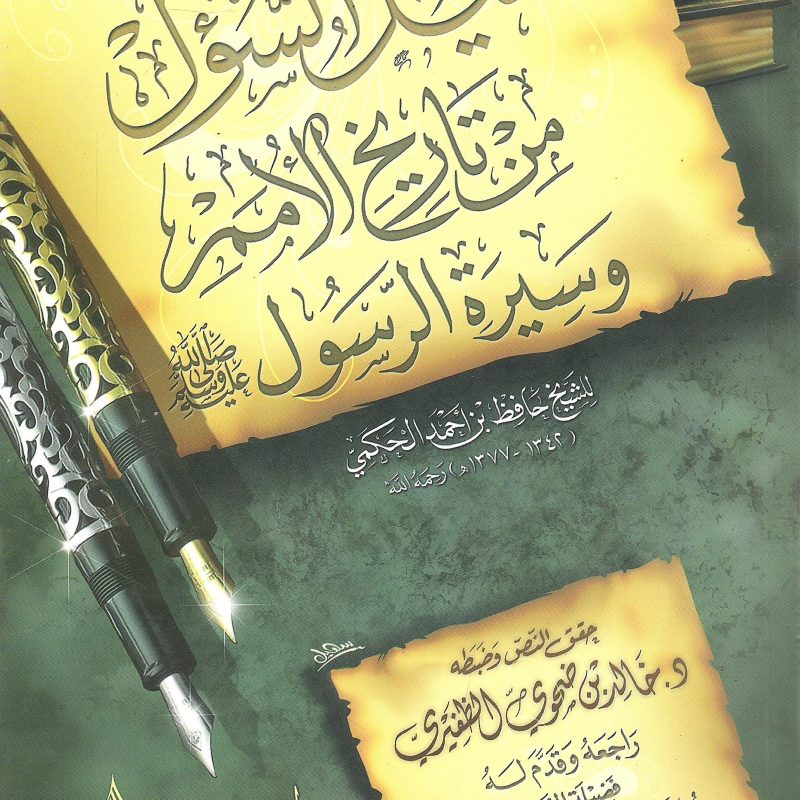 السُّؤْل
مِنْ تَارِيخِ الأُمَمِ
وَسِيرَةِ الرَّسُول صلى الله عليه وسلم
لِلشَّيْخِ حَافِظ بْن أَحْمَد الحَكَمِيّ
(١٣٤٢ - ١٣٧٧ هـ) رَحِمَهُ اللَّه
حقق النّصّ وَضبَطه
د. خَالِد بْن ضحَوي الظّفيريّ
رَاجَعَهُ وَقَدَّمَ لَهُ
فَضيلة